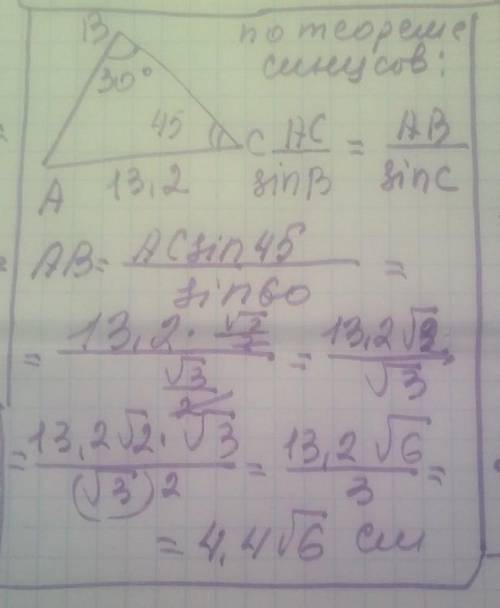 B
по теореме
синусов:
30°
45
C
A
13,2
AC/sinB = AB/sinC
AB = ACsin45/sin60 =
= 13,2·√2/2 / √3/2 = 13,2√2/√3
= 13,2√2·√3/(√3)2 = 13,2√6/3 =
= 4,4√6 см